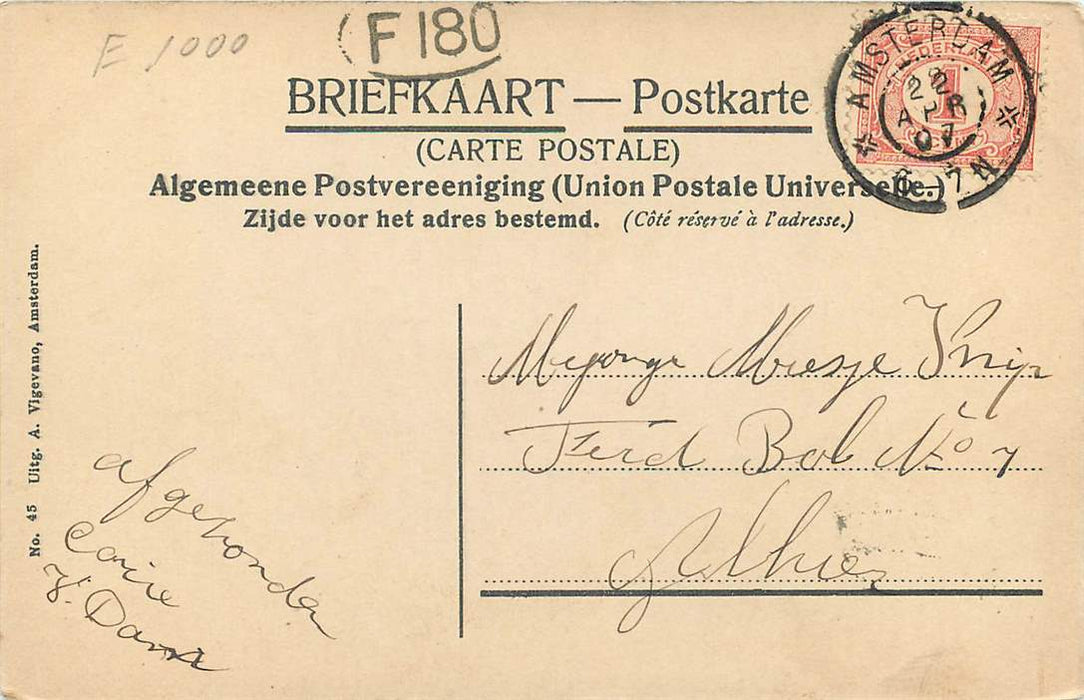 E 1000
F 180
BRIEFKAART — Postkarte
(CARTE POSTALE)
Algemeene Postvereeniging (Union Postale Universelle.)
Zijde voor het adres bestemd. (Côté réservé à l'adresse.)
AMSTERDAM
22
APR
07
6-7N
NEDERLAND
1
No. 45 Uitg. A. Vigevano, Amsterdam.
Mejonge Miesje Snip
Ferd Bol No 7
Alhier
afgezonden
v. Dam